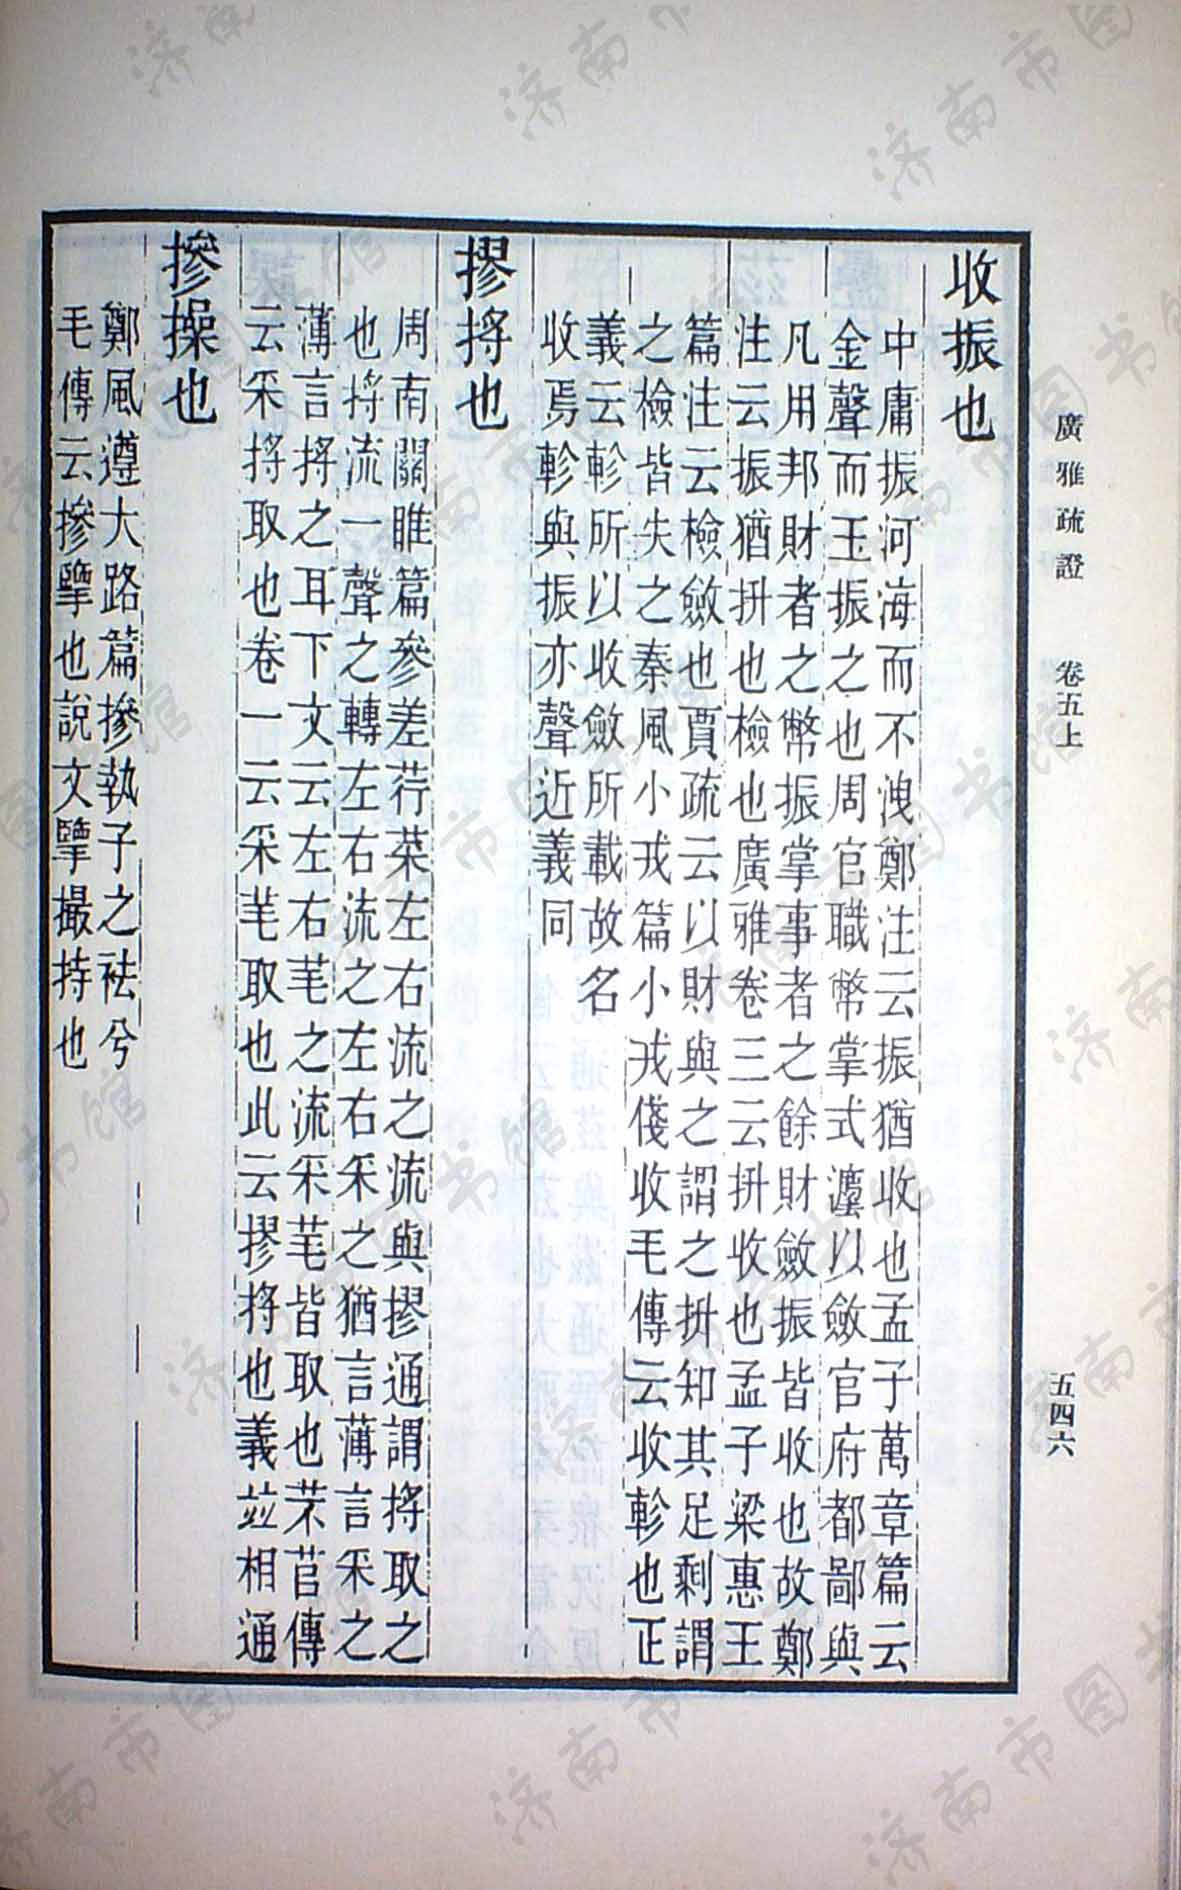 廣雅疏證　卷五上
五四六
收振也
中庸振河海而不洩鄭注云振猶收也孟子萬章篇云
金聲而玉振之也周官職幣掌式灋以斂官府都鄙與
凡用邦財者之幣振掌事者之餘財斂振皆收也故鄭
注云振猶抍也檢也廣雅卷三云抍收也孟子梁惠王
篇注云檢斂也賈疏云以財與之謂之抍知其足剩謂
之檢皆失之秦風小戎篇小戎俴收毛傳云收軫也正
義云軫所以收斂所載故名
收焉軫與振亦聲近義同
摎捋也
周南關雎篇參差荇菜左右流之流與摎通謂捋取之
也捋流一聲之轉左右流之左右采之猶言薄言采之
薄言捋之耳下文云左右芼之流采芼皆取也芣苢傳
云采捋取也卷一云采芼取也此云摎捋也義竝相通
摻操也
鄭風遵大路篇摻執子之袪兮
毛傳云摻擥也說文擥撮持也
济南市图书馆